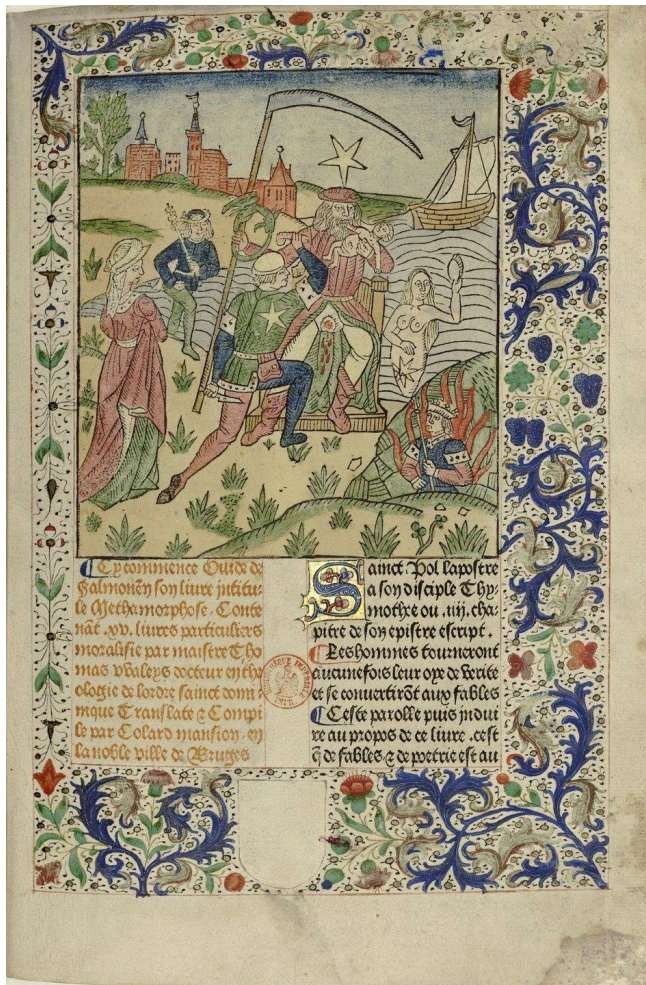 Cy commence Ouide de
Salmonen son liure intitu-
le Methamorphose. Conte
nāt .xv. liures particuliers
moralisie par maistre Tho
mas waleys docteur en the
ologie de lordre sainct domi
nique Translate & Compi
le par Colard mansion en
la noble ville de Bruges
Sainct Pol lapostre
a son disciple Thy-
mothee ou .iiij. cha-
pitre de son epistre escript.
Les hommes tourneront
aucunefois leur oye de verite
et se convertirōt aux fables
Ceste parolle puis indui
re au propos de ce liure .cest
q̄ de fables & de poetrie est au